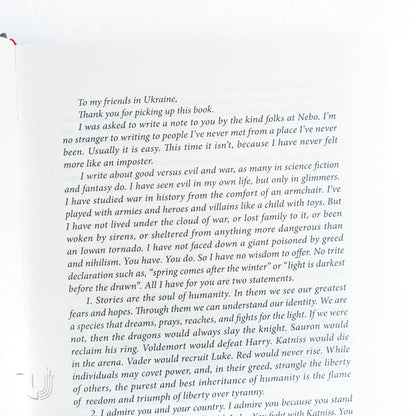 To my friends in Ukraine,
Thank you for picking up this book.
I was asked to write a note to you by the kind folks at Nebo. I'm
no stranger to writing to people I've never met from a place I've never
been. Usually it is easy. This time it isn't, because I have never felt
more like an imposter.
I write about good versus evil and war, as many in science fiction
and fantasy do. I have seen evil in my own life, but only in glimmers.
I have studied war in history from the comfort of an armchair. I've
played with armies and heroes and villains like a child with toys. But
I have not lived under the cloud of war, or lost family to it, or been
woken by sirens, or sheltered from anything more dangerous than
an Iowan tornado. I have not faced down a giant poisoned by greed
and nihilism. You have. You do. So I have no wisdom to offer. No trite
declaration such as, “spring comes after the winter” or “light is darkest
before the drawn”. All I have for you are two statements.
1. Stories are the soul of humanity. In them we see our greatest
fears and hopes. Through them we can understand our identity. We are
a species that dreams, prays, reaches, and fights for the light. If we were
not, then the dragons would always slay the knight. Sauron would
reclaim his ring. Voldemort would defeat Harry. Katniss would die
in the arena. Vader would recruit Luke. Red would never rise. While
individuals may covet power, and, in their greed, strangle the liberty
of others, the purest and best inheritance of humanity is the flame
of freedom and triumph of liberty over tyranny.
2. I admire you and your country. I admire you because you stand
You fight with Katniss. You